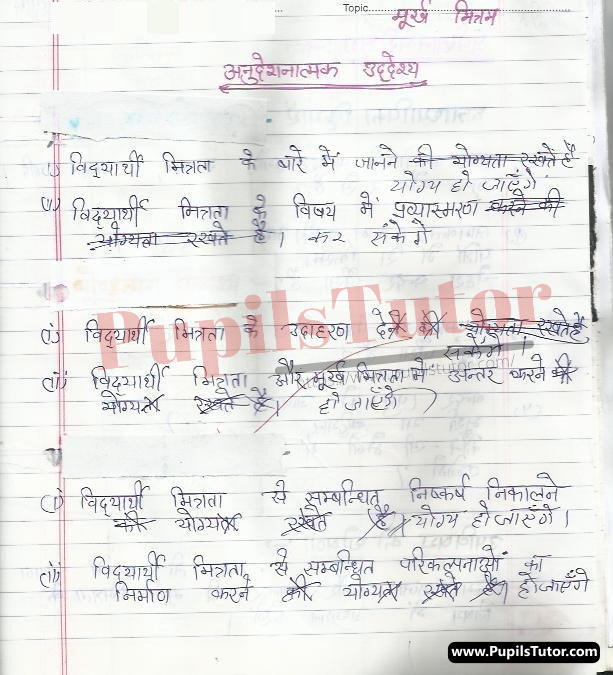 Topic मूर्ख मित्रम
अनुदेशनात्मक उद्देश्य
(i) विद्यार्थी मित्रता के बारे में जानने की योग्यता रखते है
योग्य हो जाएँगे
(ii) विद्यार्थी मित्रता के विषय में प्रत्यास्मरण करने की
योग्यता रखते है। कर सकेगे
PupilsTutor
(i) विद्यार्थी मित्रता के उदाहरण देने की योग्यता रखते है
सकेंगे।
(ii) विद्यार्थी मित्रता और मूर्ख मित्रता मे अन्तर करने की
योग्यता रखते है। हो जाएँगे
(i) विद्यार्थी मित्रता से सम्बन्धित निष्कर्ष निकालने
की योग्यता रखते है। योग्य हो जाएँगे।
(ii) विद्यार्थी मित्रता से सम्बन्धित परिकल्पनाओं का
निर्माण करने की योग्यता रखते है। हो जाएँगे
www.PupilsTutor.Com